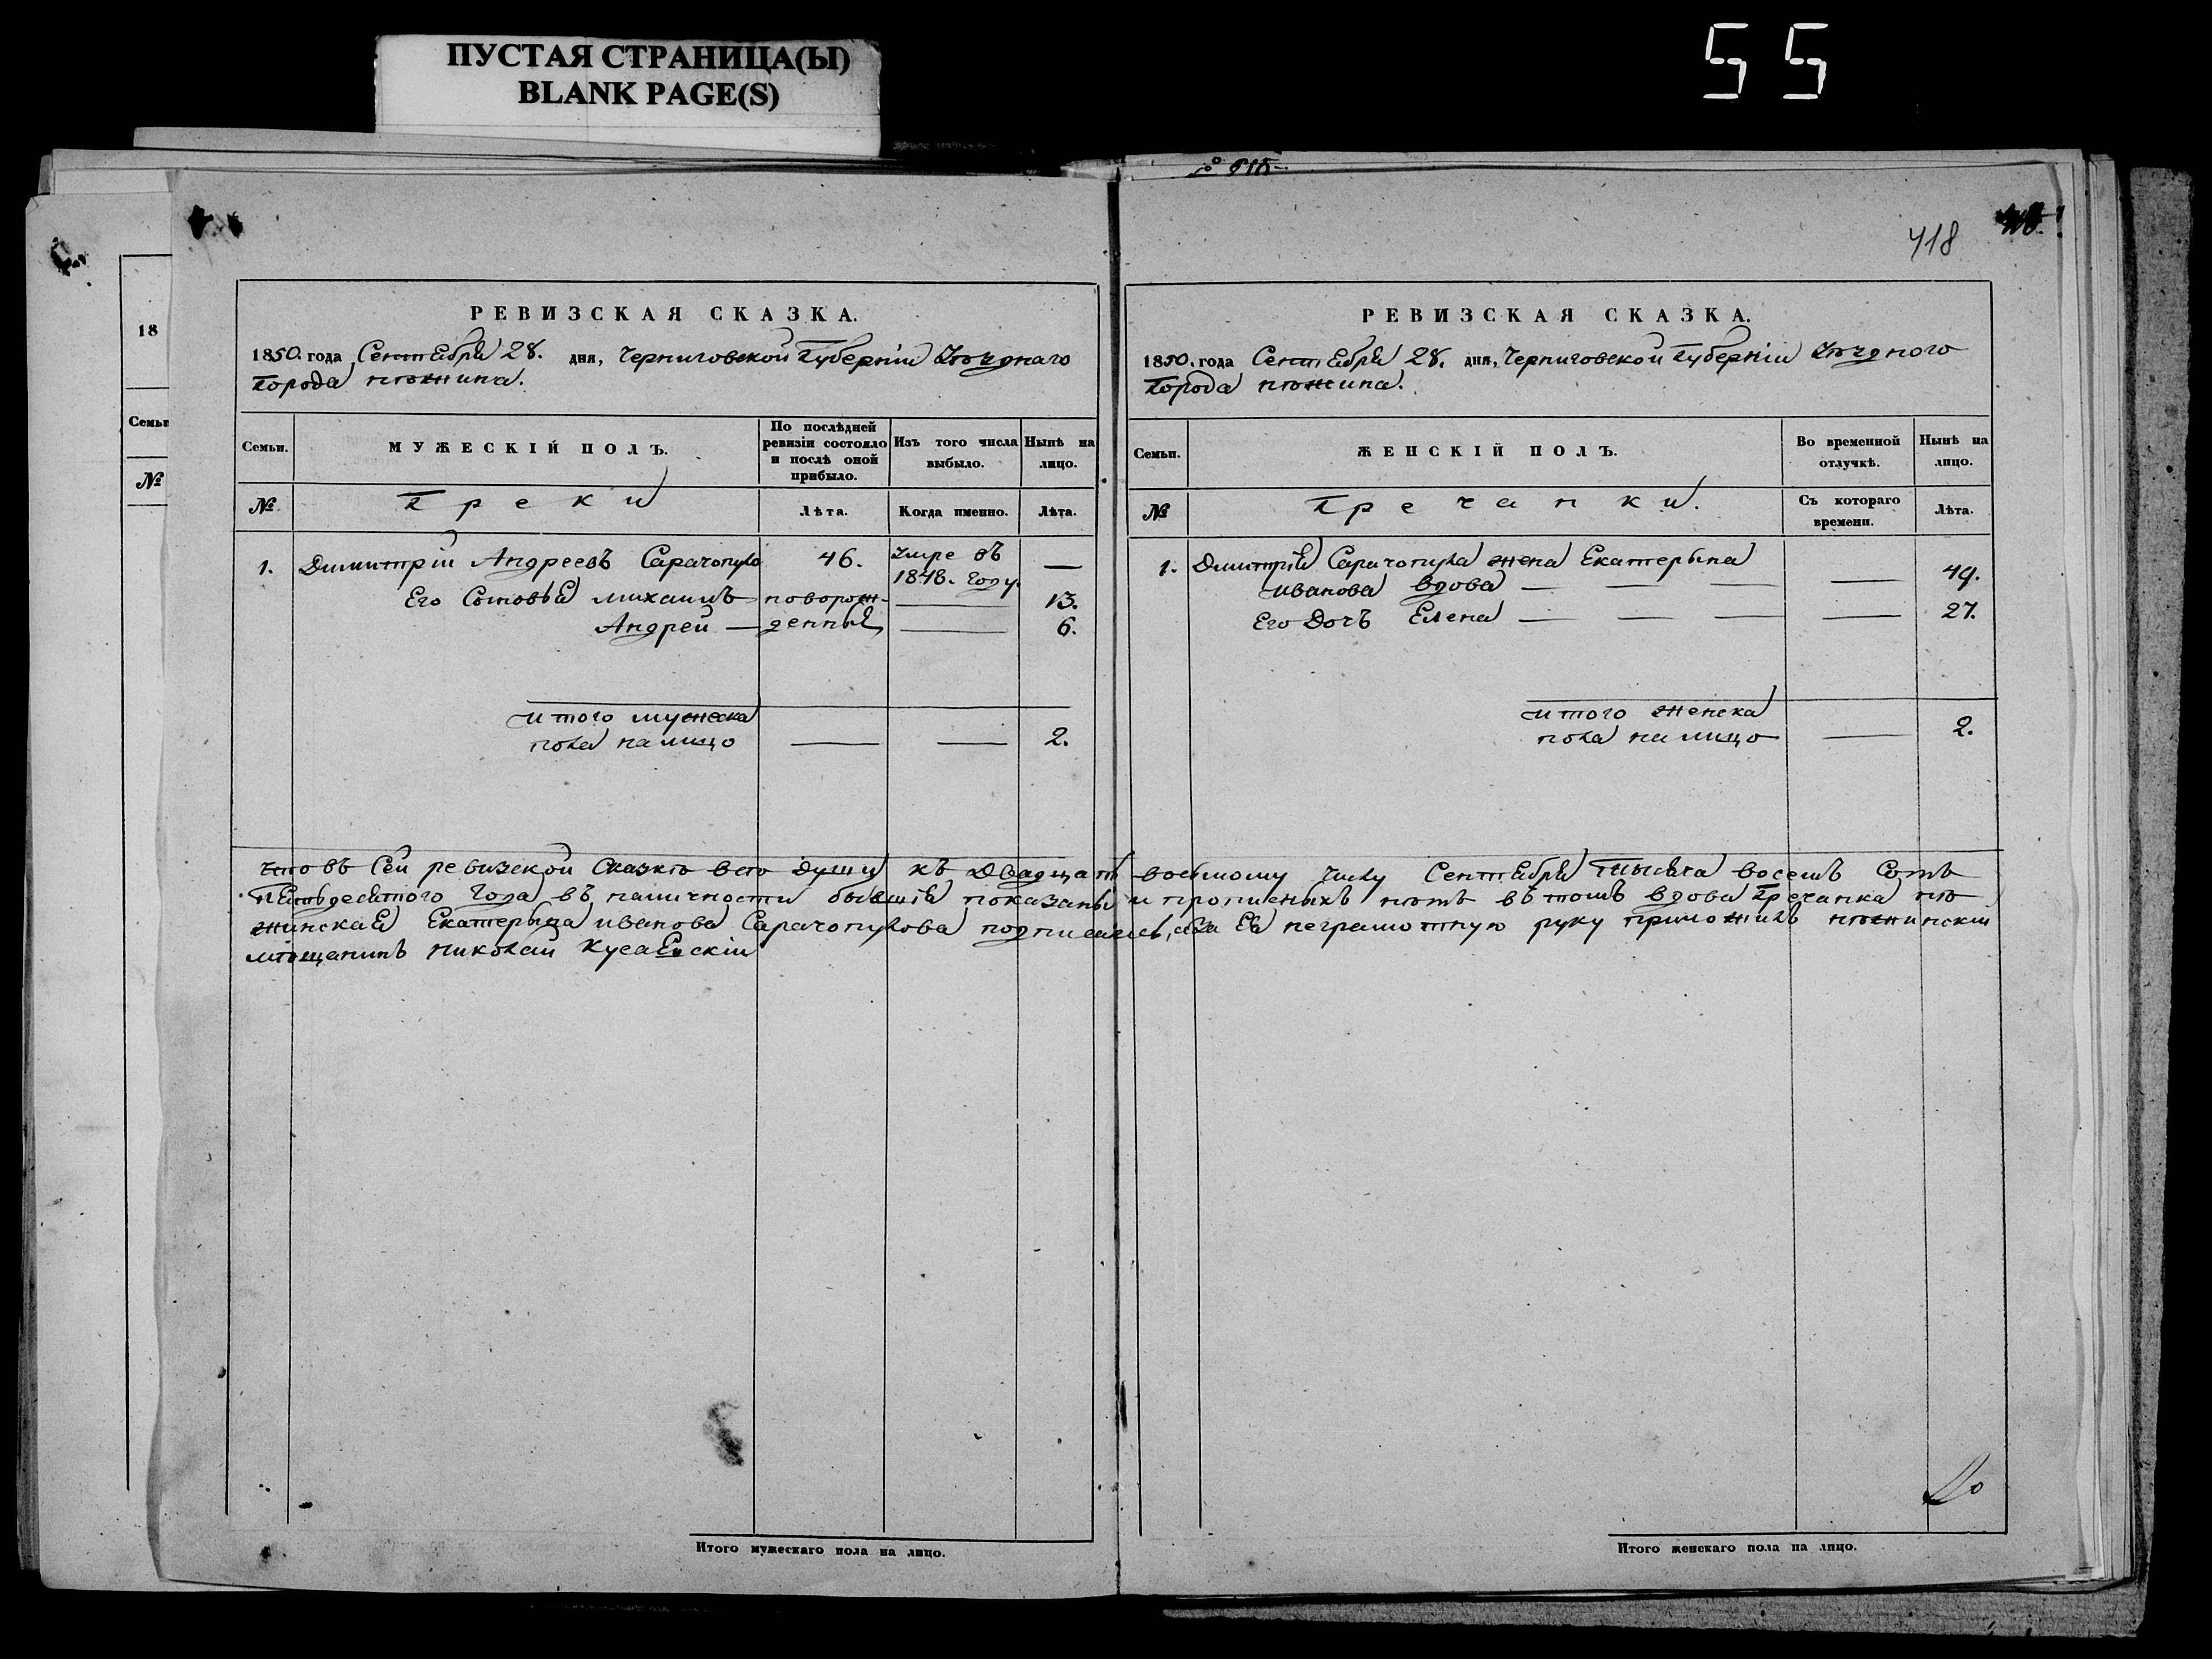 ПУСТАЯ СТРАНИЦА(Ы)
BLANK PAGE(S)
55
418
18
Семьи
№
РЕВИЗСКАЯ СКАЗКА.
1850. года Сентября 28. дня, Черниговской Губернии Уѣзднаго
Города нѣжина.
Семьи.
МУЖЕСКІЙ ПОЛЪ.
По послѣдней ревизіи состояло и послѣ оной прибыло.
Изъ того числа выбыло.
Нынѣ на лицо.
№
Греки
Лѣта.
Когда именно.
Лѣта.
1. Димитрій Андреевъ Сарачопуло 46. Умре въ 1848. году. —
Его Сыновья михаилъ новорож- — 13.
Андрей — денныя — 6.
итого мужеска
пола на лицо — — 2.
РЕВИЗСКАЯ СКАЗКА.
1850. года Сентября 28. дня, Черниговской Губерніи Уѣздного
Города нѣжина.
Семьи.
ЖЕНСКІЙ ПОЛЪ.
Во временной отлучкѣ.
Нынѣ на лицо.
№
Гречанки.
Съ котораго времени.
Лѣта.
1. Димитрія Сарачопула жена Екатерына
иванова вдова — — — — 49.
Его Дочъ Елена — — — — 27.
итого женска
пола на лицо — 2.
Что въ Сей ревизской Сказкѣ всѣ души къ Двадцать восьмому числу Сентября тысяча восемъ Сотъ
пятьдесятого Года въ наличности бывшія показаны и прописныхъ нѣтъ въ томъ вдова Гречанка нѣ
жинская Екатерына иванова Сарачопулова подписалась, а за Ея неграмотную руку приложилъ нѣжинскій
мѣщанинъ николай
Итого мужескаго пола на лицо.
Итого женскаго пола на лицо.